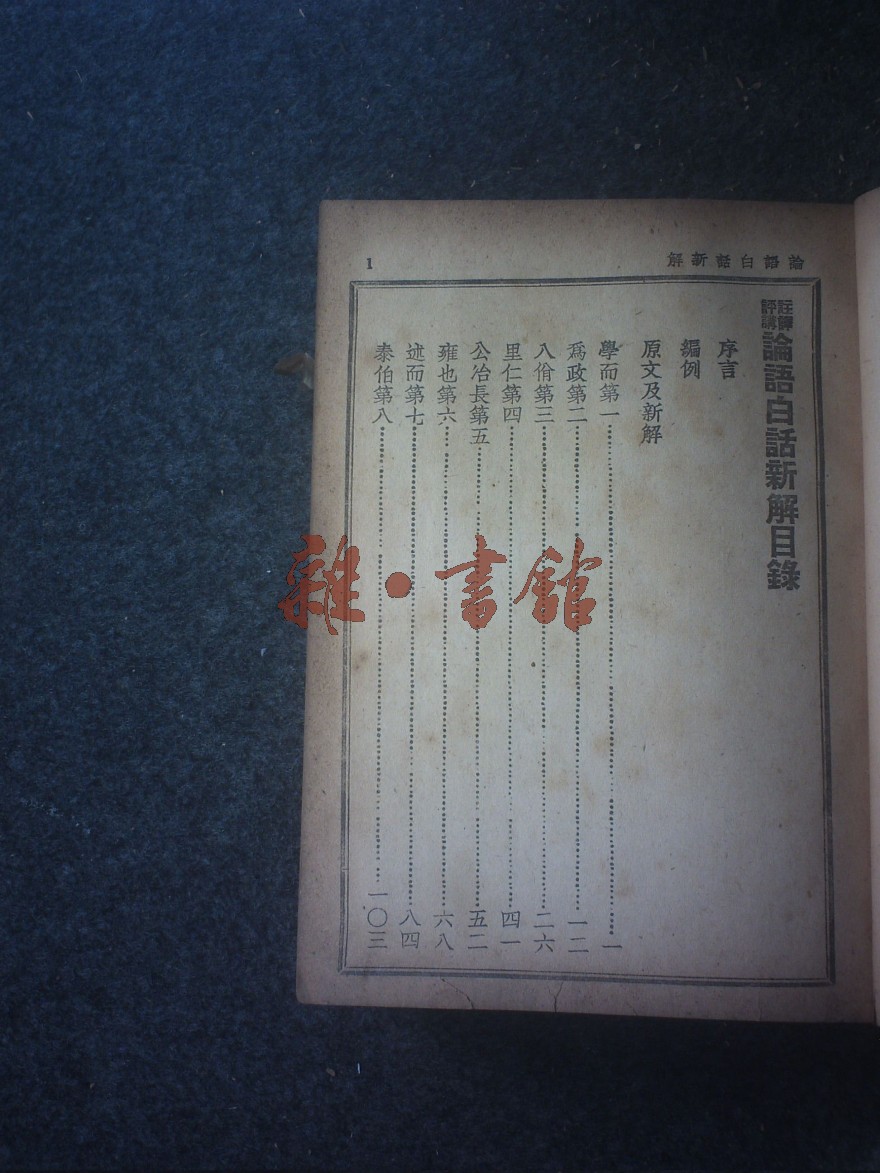 論語白話新解
1
註解評講
論語白話新解目錄
序言
編例
原文及新解
學而第一 一
爲政第二 一二
八佾第三 二六
里仁第四 四一
公冶長第五 五二
雍也第六 六八
述而第七 八四
泰伯第八 一〇三
雜·書館